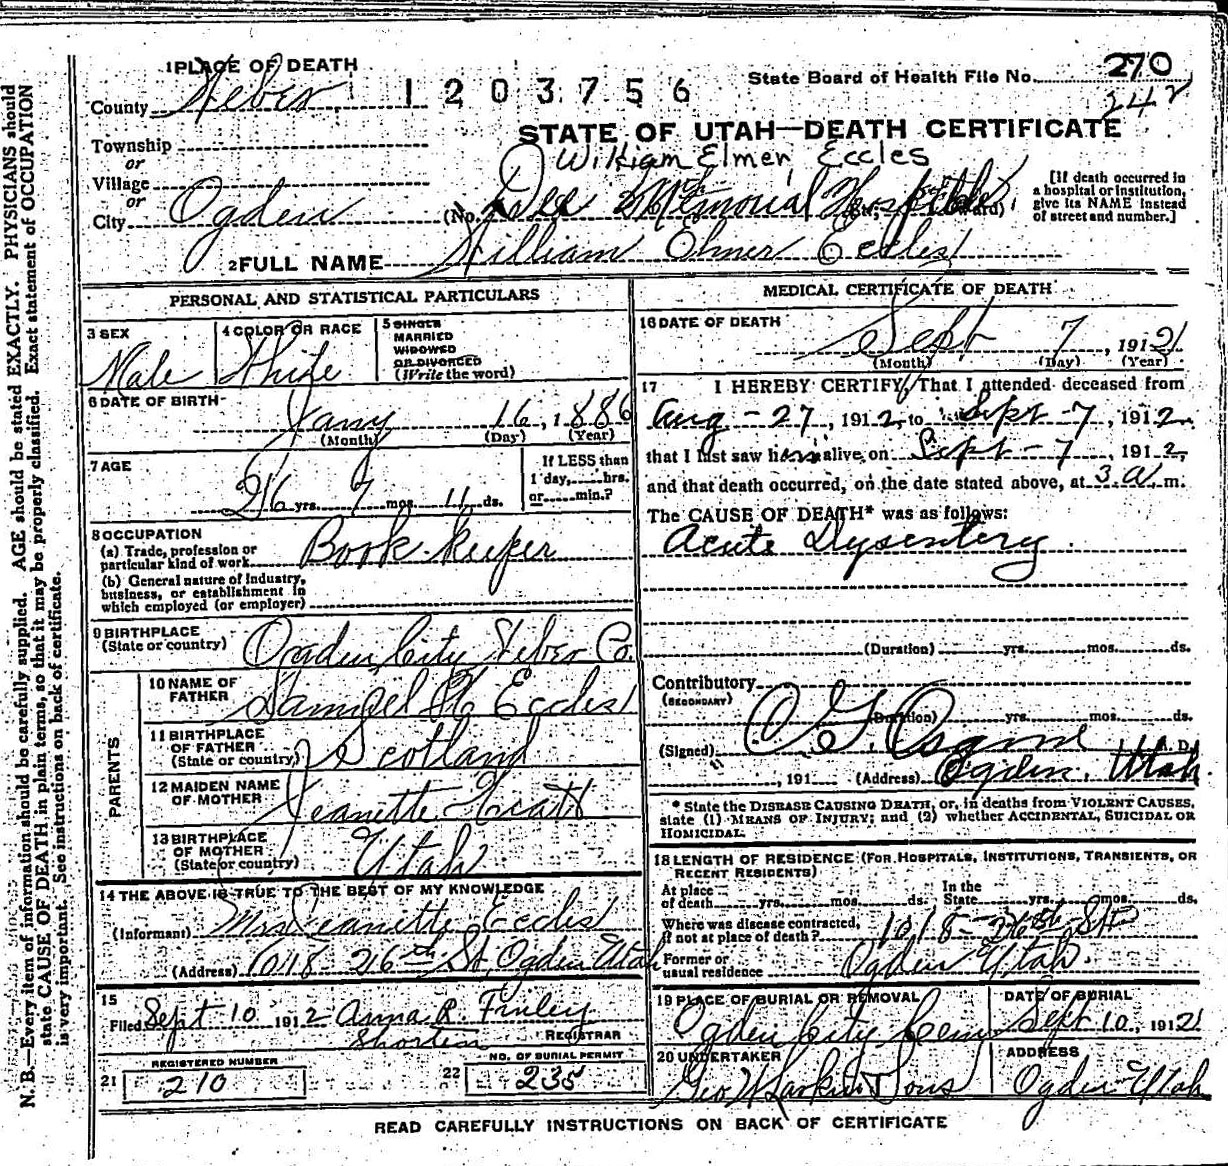 1 PLACE OF DEATH
County Weber
1203756
State Board of Health File No. 270
242
STATE OF UTAH—DEATH CERTIFICATE
Township
or
Village
or
City Ogden
William Elmer Eccles
(No. Dee Memorial Hospital St; Ward)
[If death occurred in
a hospital or institution,
give its NAME instead
of street and number.]
2 FULL NAME William Elmer Eccles
PERSONAL AND STATISTICAL PARTICULARS
3 SEX
Male
4 COLOR OR RACE
White
5 SINGLE
MARRIED
WIDOWED
OR DIVORCED
(Write the word)
6 DATE OF BIRTH
Jany 16, 1886
(Month) (Day) (Year)
7 AGE
26 yrs. 7 mos. 11 ds.
If LESS than
1 day, hrs.
or min.?
8 OCCUPATION
(a) Trade, profession or
particular kind of work Book-keeper
(b) General nature of industry,
business, or establishment in
which employed (or employer)
9 BIRTHPLACE
(State or country) Ogden City Weber Co.
PARENTS
10 NAME OF
FATHER Samuel H Eccles
11 BIRTHPLACE
OF FATHER
(State or country) Scotland
12 MAIDEN NAME
OF MOTHER Jeanette
13 BIRTHPLACE
OF MOTHER
(State or country) Utah
14 THE ABOVE IS TRUE TO THE BEST OF MY KNOWLEDGE
(Informant) Mrs Jeanette Eccles
(Address) 1018-26th St, Ogden Utah
15
Filed Sept 10 1912 Anna R. Finley
REGISTRAR
REGISTERED NUMBER
21 210
NO. OF BURIAL PERMIT
22 235
MEDICAL CERTIFICATE OF DEATH
16 DATE OF DEATH
Sept 7, 1912
(Month) (Day) (Year)
17 I HEREBY CERTIFY, That I attended deceased from
Aug-27, 1912, to Sept-7, 1912
that I last saw him alive on Sept-7, 1912,
and that death occurred, on the date stated above, at 3 a. m.
The CAUSE OF DEATH* was as follows:
Acute Dysentery.
(Duration) yrs. mos. ds.
Contributory
(SECONDARY)
(Duration) yrs. mos. ds.
(Signed) M. D.
, 191 (Address) Ogden, Utah
* State the DISEASE CAUSING DEATH, or, in deaths from VIOLENT CAUSES,
state (1) MEANS OF INJURY; and (2) whether ACCIDENTAL, SUICIDAL OR
HOMICIDAL.
18 LENGTH OF RESIDENCE (FOR HOSPITALS, INSTITUTIONS, TRANSIENTS, OR
RECENT RESIDENTS)
At place
of death yrs. mos. ds.
In the
State yrs. mos. ds.
Where was disease contracted,
if not at place of death? 1018-26th St
Former or
usual residence Ogden Utah.
19 PLACE OF BURIAL OR REMOVAL
Ogden City Cem
DATE OF BURIAL
Sept 10, 1912
20 UNDERTAKER
Geo W Larkin & Sons
ADDRESS
Ogden Utah
READ CAREFULLY INSTRUCTIONS ON BACK OF CERTIFICATE
N. B.—Every item of information should be carefully supplied. AGE should be stated EXACTLY. PHYSICIANS should
state CAUSE OF DEATH in plain terms, so that it may be properly classified. Exact statement of OCCUPATION
is very important. See instructions on back of certificate.